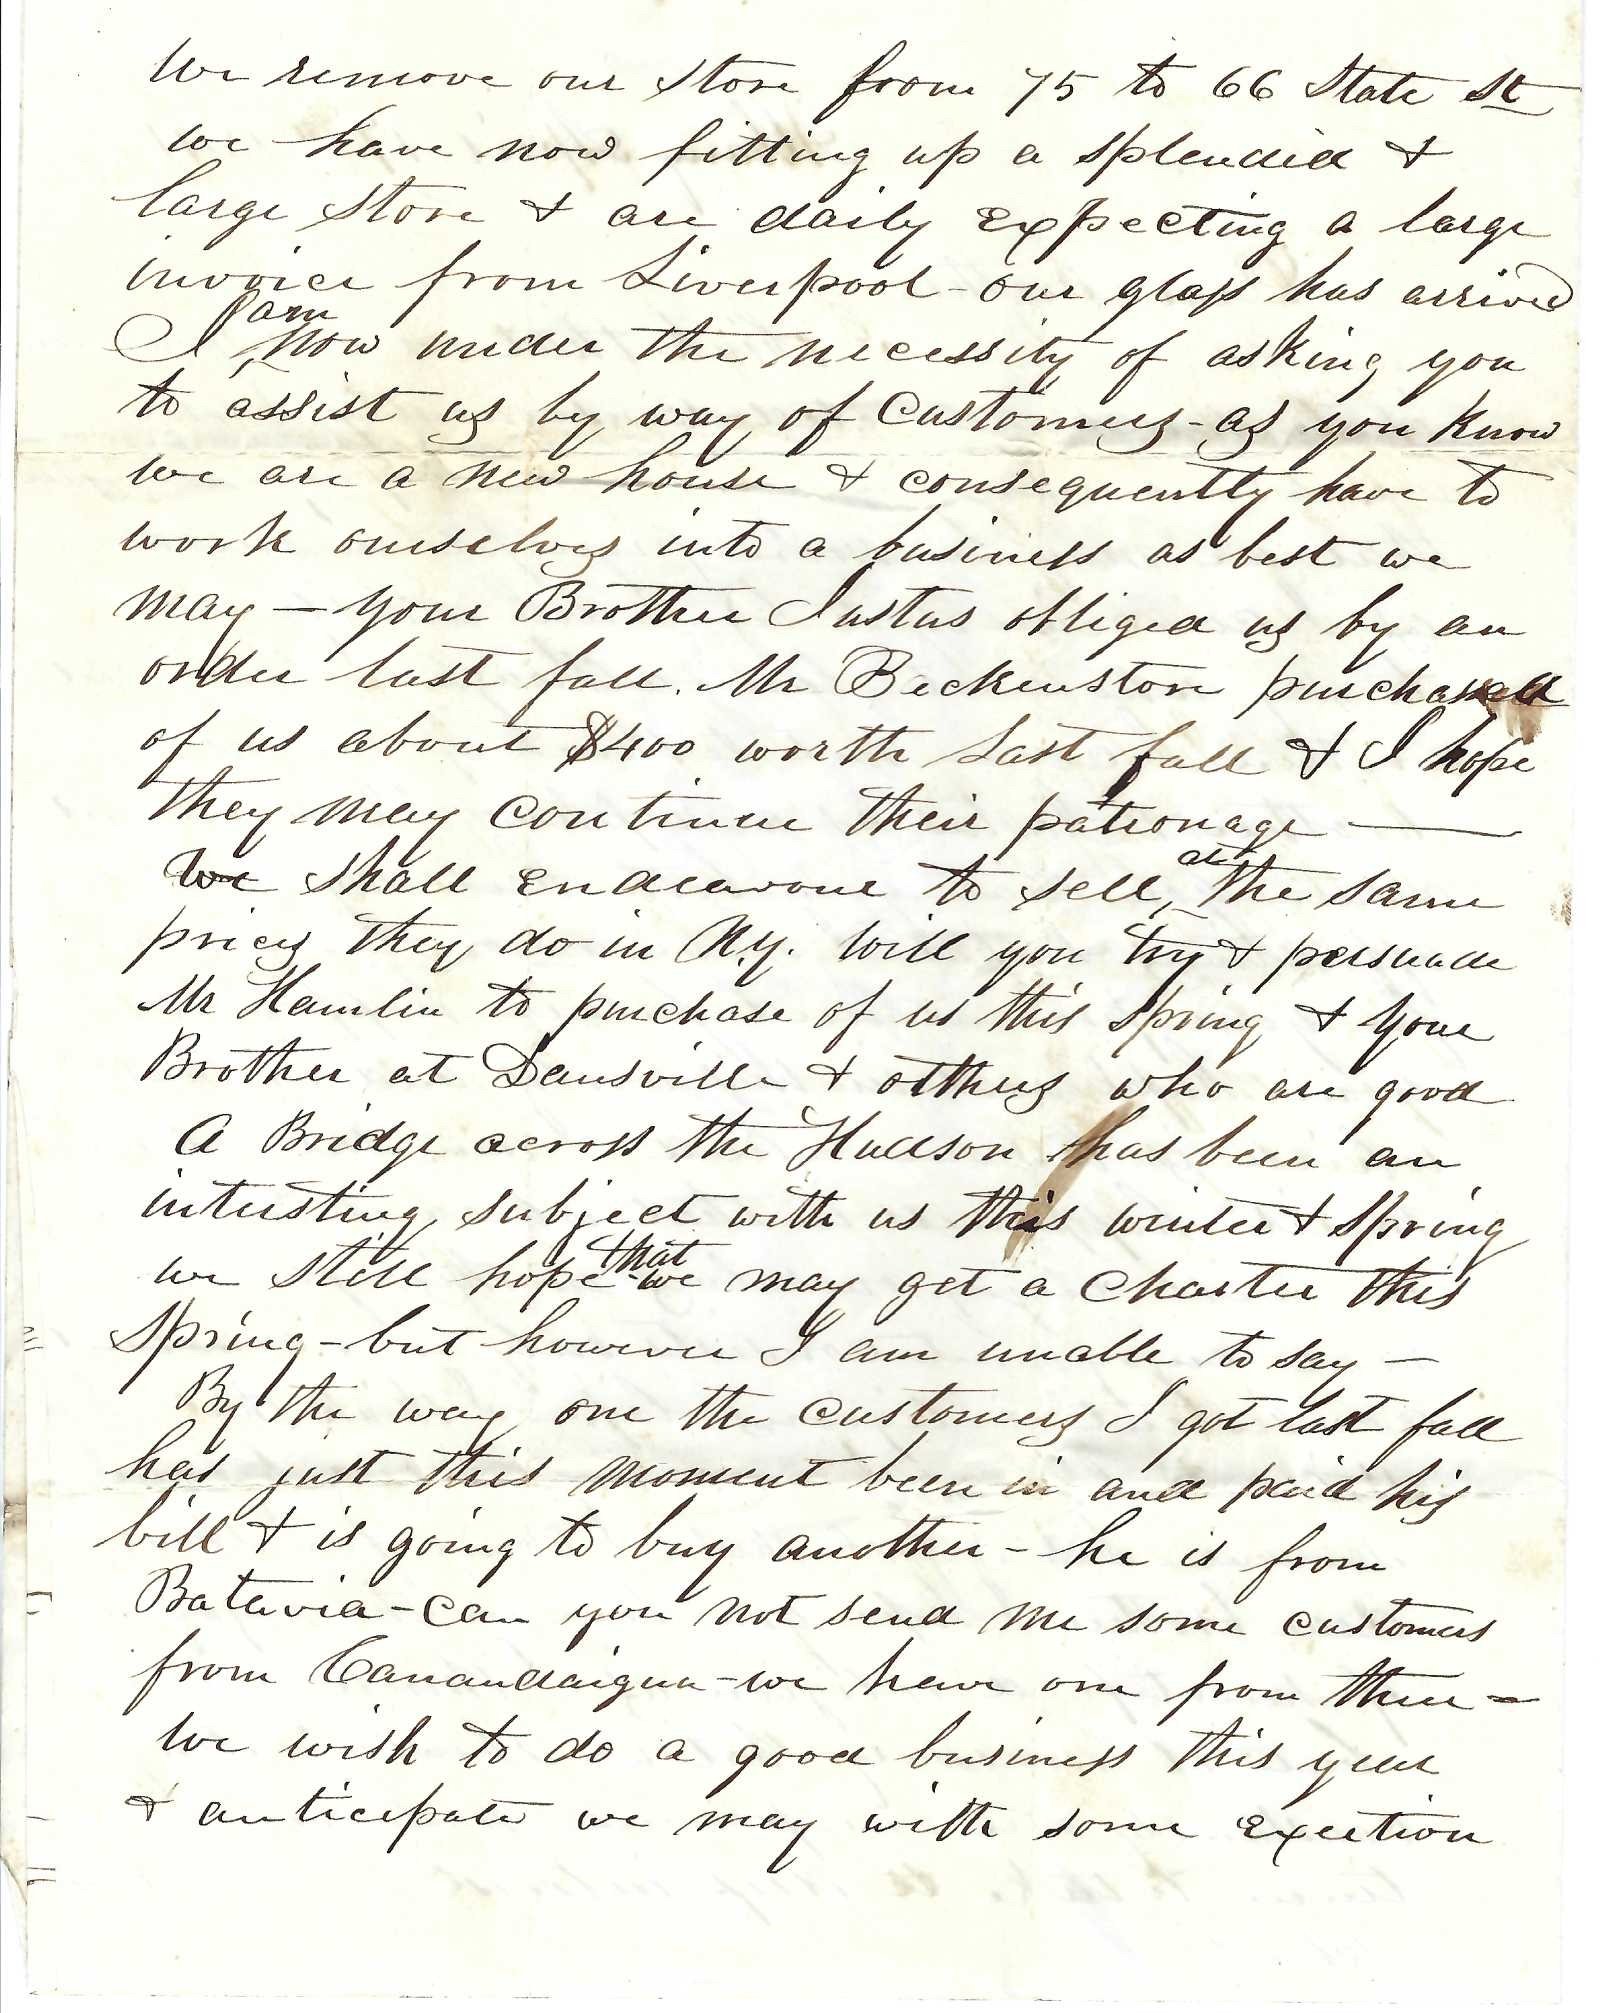 We remove our store from 75 to 66 State St
we have now fitting up a splendid &
large store & are daily expecting a large
invoice from Liverpool - our glass has arrived
I am now under the necessity of asking you
to assist us by way of Customers - as you know
we are a new house & consequently have to
work ourselves into a business as best we
may — your Brother Justus obliged us by an
order last fall. Mr Beckenstore purchased
of us about $400 worth last fall & I hope
they may continue their patronage —
We shall endeavour to sell, at the same
prices they do in N.Y. Will you try & persuade
Mr Hamlin to purchase of us this spring & your
Brother at Dansville & otthers who are good
A Bridge across the Hudson has been an
intersting subject with us this winter & Spring
we still hope that we may get a Charter this
Spring - but however I am unable to say —
By the way one the customers I got last fall
has just this moment been in and paid his
bill & is going to buy another - he is from
Batavia - can you not send me some customers
from Canandaigua - we have one from there -
We wish to do a good business this year
& anticepate we may with some exertion